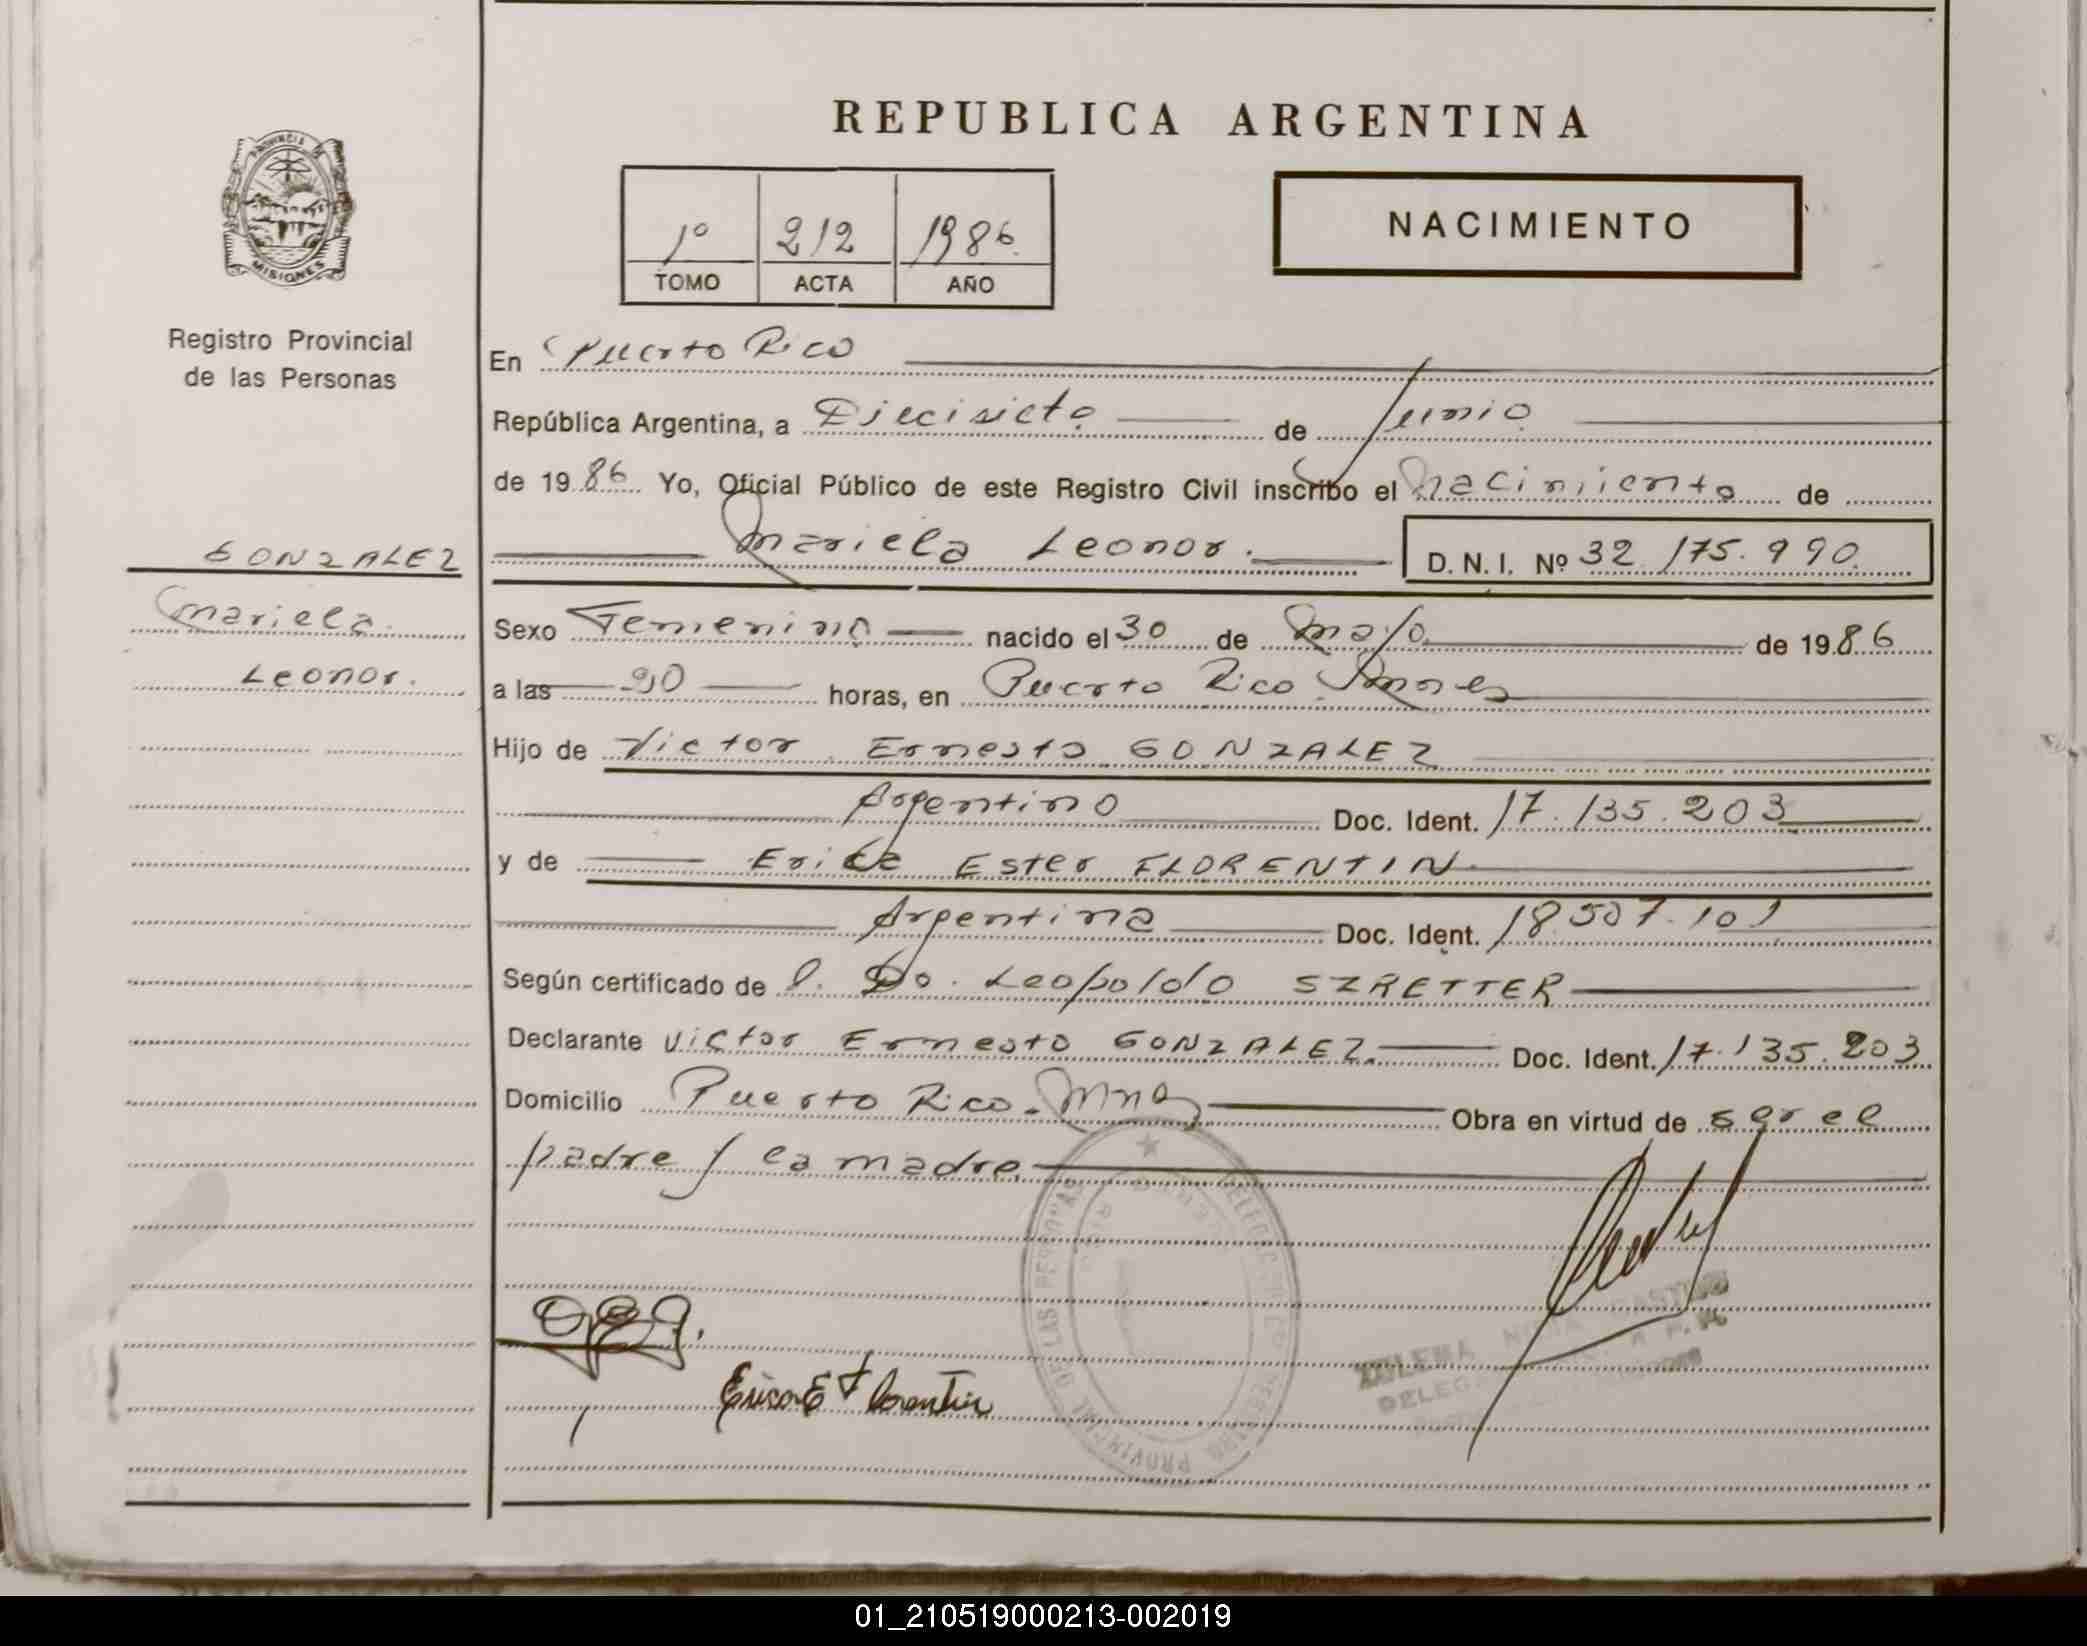 REPUBLICA ARGENTINA
PROVINCIA DE
MISIONES
Registro Provincial
de las Personas
1º 212 1986
TOMO ACTA AÑO
NACIMIENTO
En Puerto Rico
República Argentina, a Diecisiete de Junio
de 1986 Yo, Oficial Público de este Registro Civil inscribo el nacimiento de
Mariela Leonor. D. N. I. Nº 32.175.990
GONZALEZ
Mariela
Leonor.
Sexo Femenino nacido el 30 de Mayo de 1986
a las horas, en Puerto Rico
Hijo de Victor Ernesto GONZALEZ
Argentino Doc. Ident. 17.135.203
y de Erica Ester FLORENTIN
Argentina Doc. Ident. 18.507.101
Según certificado de Leopoldo SZRETTER
Declarante Victor Ernesto GONZALEZ Doc. Ident. 17.135.203
Domicilio Puerto Rico. Mnes Obra en virtud de ser el
padre y la madre
Erica E Florentin
PROVINCIAL DE LAS PERSONAS
01_210519000213-002019